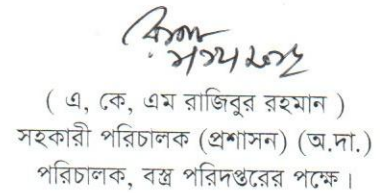 ( এ, কে, এম রাজিবুর রহমান )
সহকারী পরিচালক (প্রশাসন) (অ.দা.)
পরিচালক, বস্ত্র পরিদপ্তরের পক্ষে।